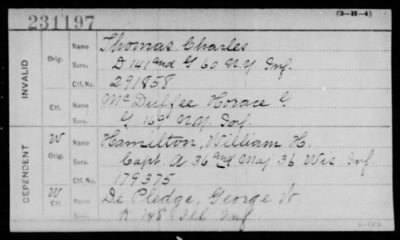 231197
(3-H-4)
INVALID
Orig.
Name Thomas Charles
Serv. D 141 and G 60 N.Y. Inf.
Ctf. No. 291858
Ctf.
Name McDuffee Horace G
G 169 N.Y. Inf.
DEPENDENT
W
Orig.
Name Hamilton, William H.
Serv. Capt. A 36 and Maj 36 Wis. Inf
Ctf. No. 179375
W
Ctf.
Name De Pledge, George W
K 148 Ill. Inf